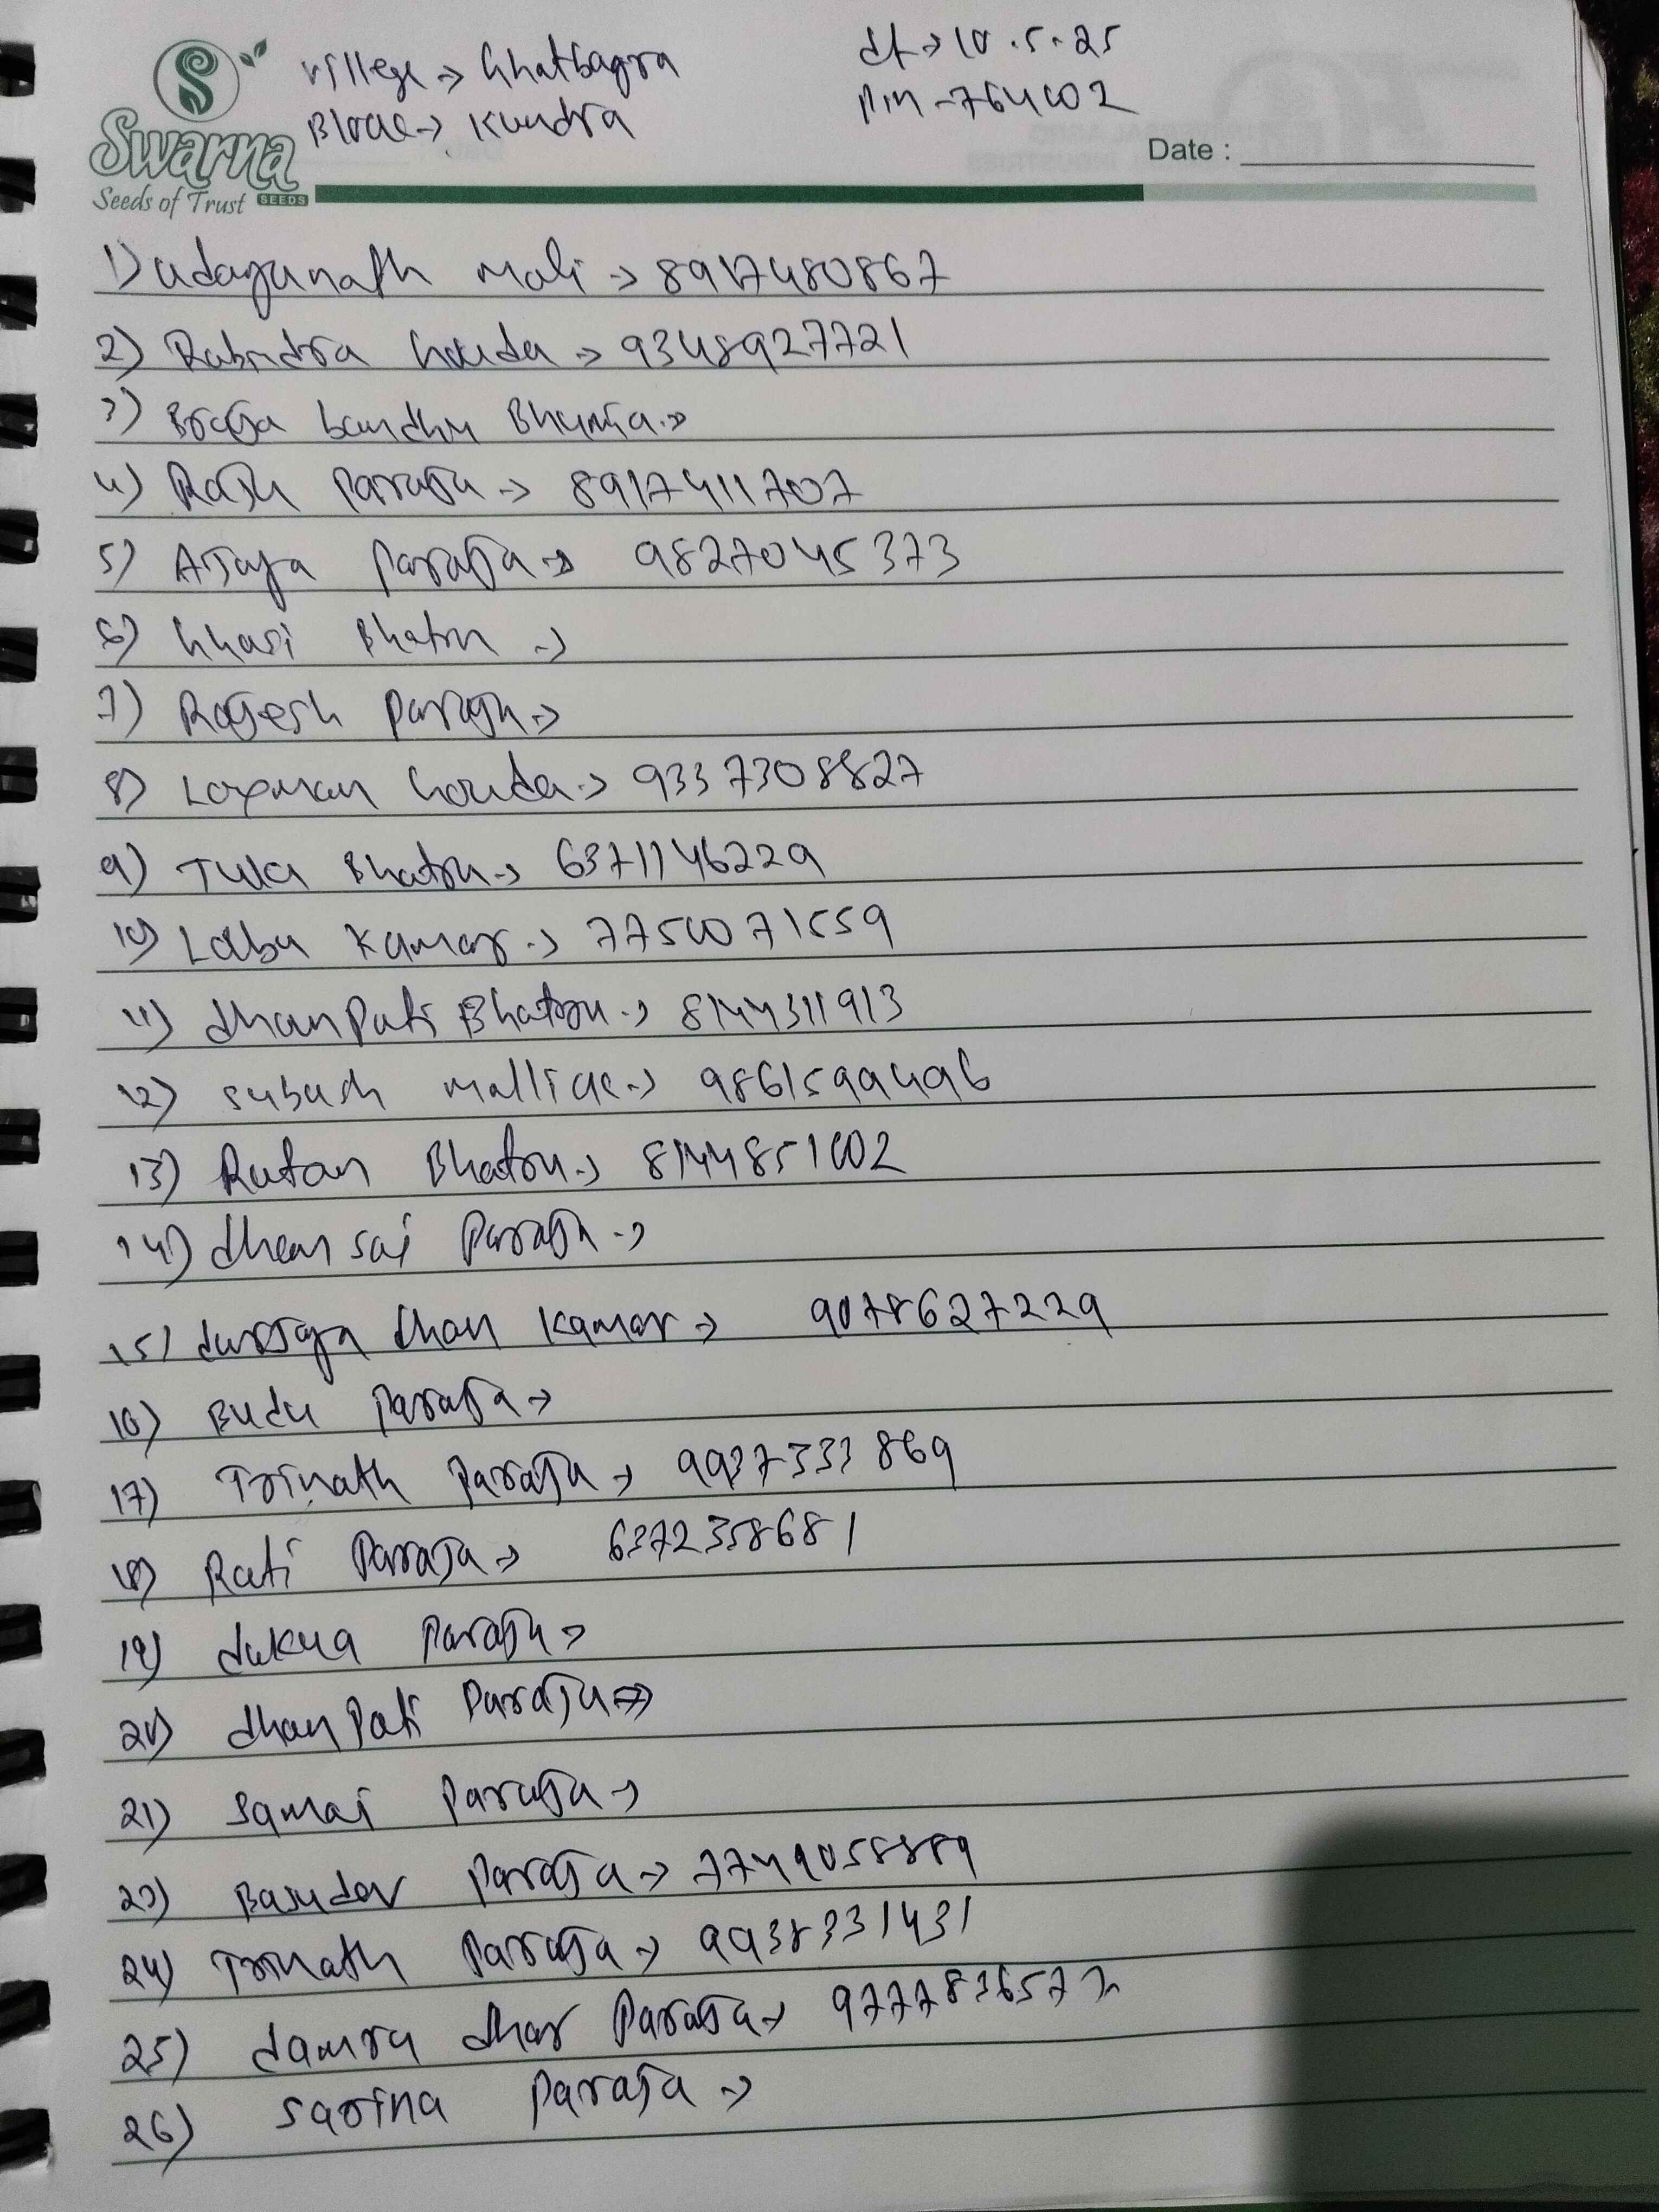 Villege → Ghatbagra
dt → 10.5.25
Block → Kundra
Pin - 764002
Swarna
Seeds of Trust SEEDS
Date :
1) Udayanath Mali → 8917480867
2) Rabindra Gouda → 9348927721
3) Braja bandhu Bhumia →
4) Raju Paraja → 8917411707
5) Ajaya Paraja → 9827045373
6) Ghasi Bhatra →
7) Rajesh Paraja →
8) Laxman Gouda → 9337308827
9) Tula Bhatra → 6371146229
10) Laba Kamar → 7750071559
11) dhanpati Bhatra → 8144311913
12) Subash Mallick → 9861599496
13) Ratan Bhatra → 8144851002
14) dhan sai Paraja →
15) durjaya dhan Kamar → 9078627229
16) Budu Paraja →
17) Trinath Paraja → 9937333869
18) Rati Paraja → 6372358681
19) dukua Paraja →
20) dhanpati Paraja →
21) Samai Paraja →
23) Basudev Paraja → 7749058889
24) Trinath Paraja → 9938331431
25) damru dhar Paraja →
26) Sarina Paraja →